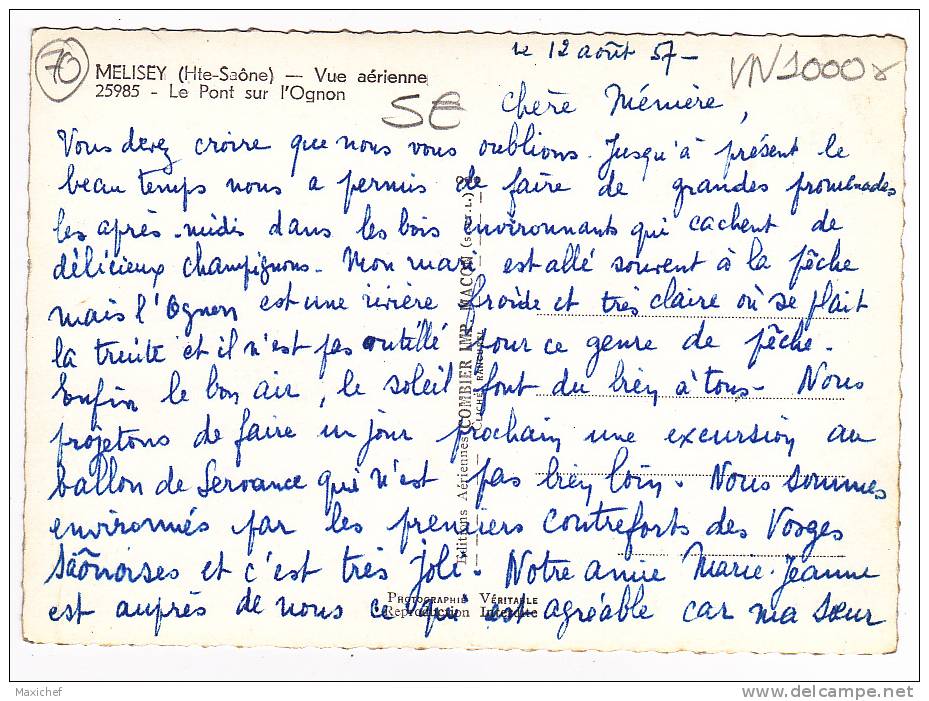 70
MELISEY (Hte-Saône) — Vue aérienne
25985 - Le Pont sur l'Ognon
Le 12 août 57-
SE
Chère Mémère,
Vous devez croire que nous vous oublions. Jusqu'à présent le
beau temps nous a permis de faire de grandes promenades
les après-midis dans les bois environnants qui cachent de
délicieux champignons. Mon mari est allé souvent à la pêche
mais l'Ognon est une rivière froide et très claire où se plait
la truite et il n'est pas outillé pour ce genre de pêche.
Enfin le bon air, le soleil font du bien à tous. Nous
projetons de faire un jour prochain une excursion au
ballon de Servance qui n'est pas bien loin. Nous sommes
environnés par les premiers contreforts des Vosges
Saônoises et c'est très joli. Notre amie Marie-Jeanne
est auprès de nous ce qui est agréable car ma sœur
Editions Aériennes COMBIER IMP. MACON
PHOTOGRAPHIE VÉRITABLE
Reproduction Interdite
Maxichef
www.delcampe.net